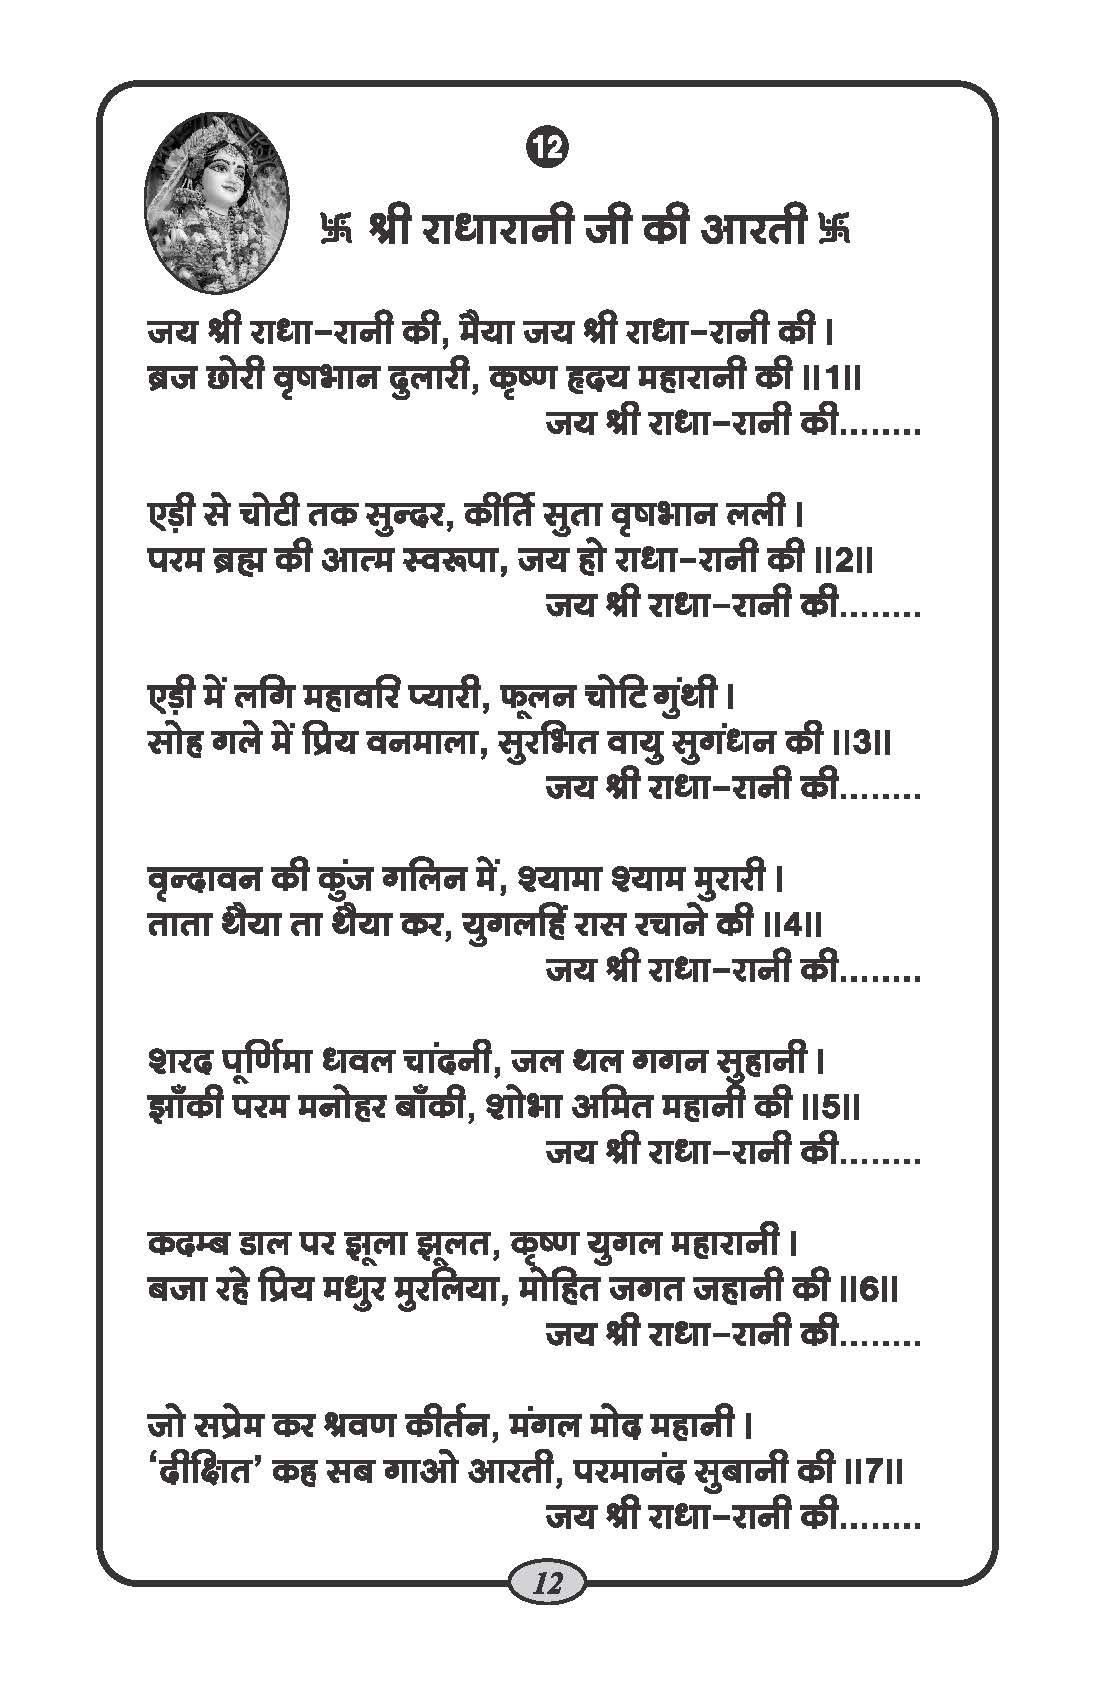 12
卐 श्री राधारानी जी की आरती 卐
जय श्री राधा-रानी की, मैया जय श्री राधा-रानी की।
ब्रज छोरी वृषभान दुलारी, कृष्ण हृदय महारानी की ॥1॥
जय श्री राधा-रानी की........
एड़ी से चोटी तक सुन्दर, कीर्ति सुता वृषभान लली।
परम ब्रह्म की आत्म स्वरूपा, जय हो राधा-रानी की ॥2॥
जय श्री राधा-रानी की........
एड़ी में लगि महावरि प्यारी, फूलन चोटि गुंथी।
सोह गले में प्रिय वनमाला, सुरभित वायु सुगंधन की ॥3॥
जय श्री राधा-रानी की........
वृन्दावन की कुंज गलिन में, श्यामा श्याम मुरारी।
ताता थैया ता थैया कर, युगलहिं रास रचाने की ॥4॥
जय श्री राधा-रानी की........
शरद पूर्णिमा धवल चांदनी, जल थल गगन सुहानी।
झाँकी परम मनोहर बाँकी, शोभा अमित महानी की ॥5॥
जय श्री राधा-रानी की........
कदम्ब डाल पर झूला झूलत, कृष्ण युगल महारानी।
बजा रहे प्रिय मधुर मुरलिया, मोहित जगत जहानी की ॥6॥
जय श्री राधा-रानी की........
जो सप्रेम कर श्रवण कीर्तन, मंगल मोद महानी।
‘दीक्षित’ कह सब गाओ आरती, परमानंद सुबानी की ॥7॥
जय श्री राधा-रानी की........
12